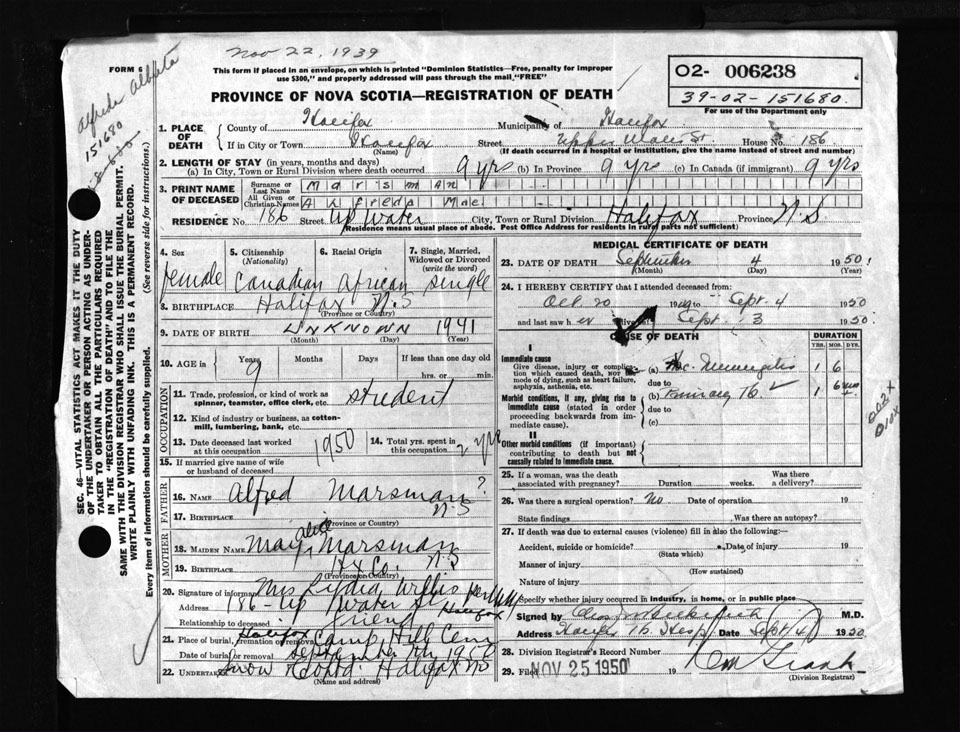 Nov 22, 1939
FORM 6
Alfreda Alberta
151680
This form if placed in an envelope, on which is printed "Dominion Statistics—Free, penalty for improper
use $300," and properly addressed will pass through the mail, "FREE"
O2- 006238
39-02-151680.
For use of the Department only
PROVINCE OF NOVA SCOTIA—REGISTRATION OF DEATH
SEC. 46—VITAL STATISTICS ACT MAKES IT THE DUTY
OF THE UNDERTAKER OR PERSON ACTING AS UNDER-
TAKER TO OBTAIN ALL THE PARTICULARS REQUIRED
IN THE "REGISTRATION OF DEATH" AND TO FILE THE
SAME WITH THE DIVISION REGISTRAR WHO SHALL ISSUE THE BURIAL PERMIT.
WRITE PLAINLY WITH UNFADING INK. THIS IS A PERMANENT RECORD.
Every item of information should be carefully supplied. (See reverse side for instructions.)
1. PLACE OF DEATH County of Halifax Municipality of Halifax
If in City or Town Halifax Street Upper Water St. House No. 186
(Name) (If death occurred in a hospital or institution, give the name instead of street and number)
2. LENGTH OF STAY (in years, months and days)
(a) In City, Town or Rural Division where death occurred 9 yrs (b) In Province 9 yrs (c) In Canada (if immigrant) 9 yrs
3. PRINT NAME OF DECEASED Surname or Last Name Marsman
All Given or Christian Names Alfreda Mae
RESIDENCE No. 186 Street Up Water City, Town or Rural Division Halifax Province N.S
(Residence means usual place of abode. Post Office Address for residents in rural parts not sufficient)
4. Sex female
5. Citizenship (Nationality) Canadian
6. Racial Origin African
7. Single, Married, Widowed or Divorced (write the word) single
8. BIRTHPLACE Halifax N.S
(Province or Country)
9. DATE OF BIRTH UNKNOWN 1941
(Month) (Day) (Year)
10. AGE in Years 9 Months Days If less than one day old
hrs. or min.
OCCUPATION
11. Trade, profession, or kind of work as spinner, teamster, office clerk, etc. student
12. Kind of industry or business, as cotton-mill, lumbering, bank, etc.
13. Date deceased last worked at this occupation 1950
14. Total yrs. spent in this occupation 2 yrs
15. If married give name of wife or husband of deceased
FATHER
16. NAME Alfred Marsman?
17. BIRTHPLACE N-S
(Province or Country)
MOTHER
18. MAIDEN NAME May Alice Marsman
19. BIRTHPLACE Hx Co. N.S
(Province or Country)
20. Signature of informant Mrs Lydia Willis
Address 186- Up Water St Halifax
Relationship to deceased friend
21. Place of burial, cremation or removal Halifax Camp Hill Cem
Date of burial or removal September 7th 1950
22. Undertaker Snow & Co Ltd Halifax NS
(Name and address)
MEDICAL CERTIFICATE OF DEATH
23. DATE OF DEATH September 4 1950
(Month) (Day) (Year)
24. I HEREBY CERTIFY that I attended deceased from:
Oct. 20 1949 to Sept. 4 1950
and last saw h er alive on Sept. 3 1950.
CAUSE OF DEATH DURATION
YRS. MOS. DYS.
I
Immediate cause
Give disease, injury or complication which caused death, not the mode of dying, such as heart failure, asphyxia, asthenia, etc.
(a) Tbc. Meningitis 1 6
due to
Morbid conditions, if any, giving rise to immediate cause (stated in order proceeding backwards from immediate cause).
(b) Primary Tb 1 6
due to
(c)
II
Other morbid conditions (if important) contributing to death but not causally related to immediate cause.
002x
010x
25. If a woman, was the death associated with pregnancy? Duration weeks. Was there a delivery?
26. Was there a surgical operation? No Date of operation 19
State findings Was there an autopsy?
27. If death was due to external causes (violence) fill in also the following:
Accident, suicide or homicide? Date of injury 19
(State which)
Manner of injury
(How sustained)
Nature of injury
Specify whether injury occurred in industry, in home, or in public place
Signed by M.D.
Address Halifax Tb Hosp. Date Sept 4 1950
28. Division Registrar's Record Number
29. Filed NOV 25 1950 19
(Division Registrar)